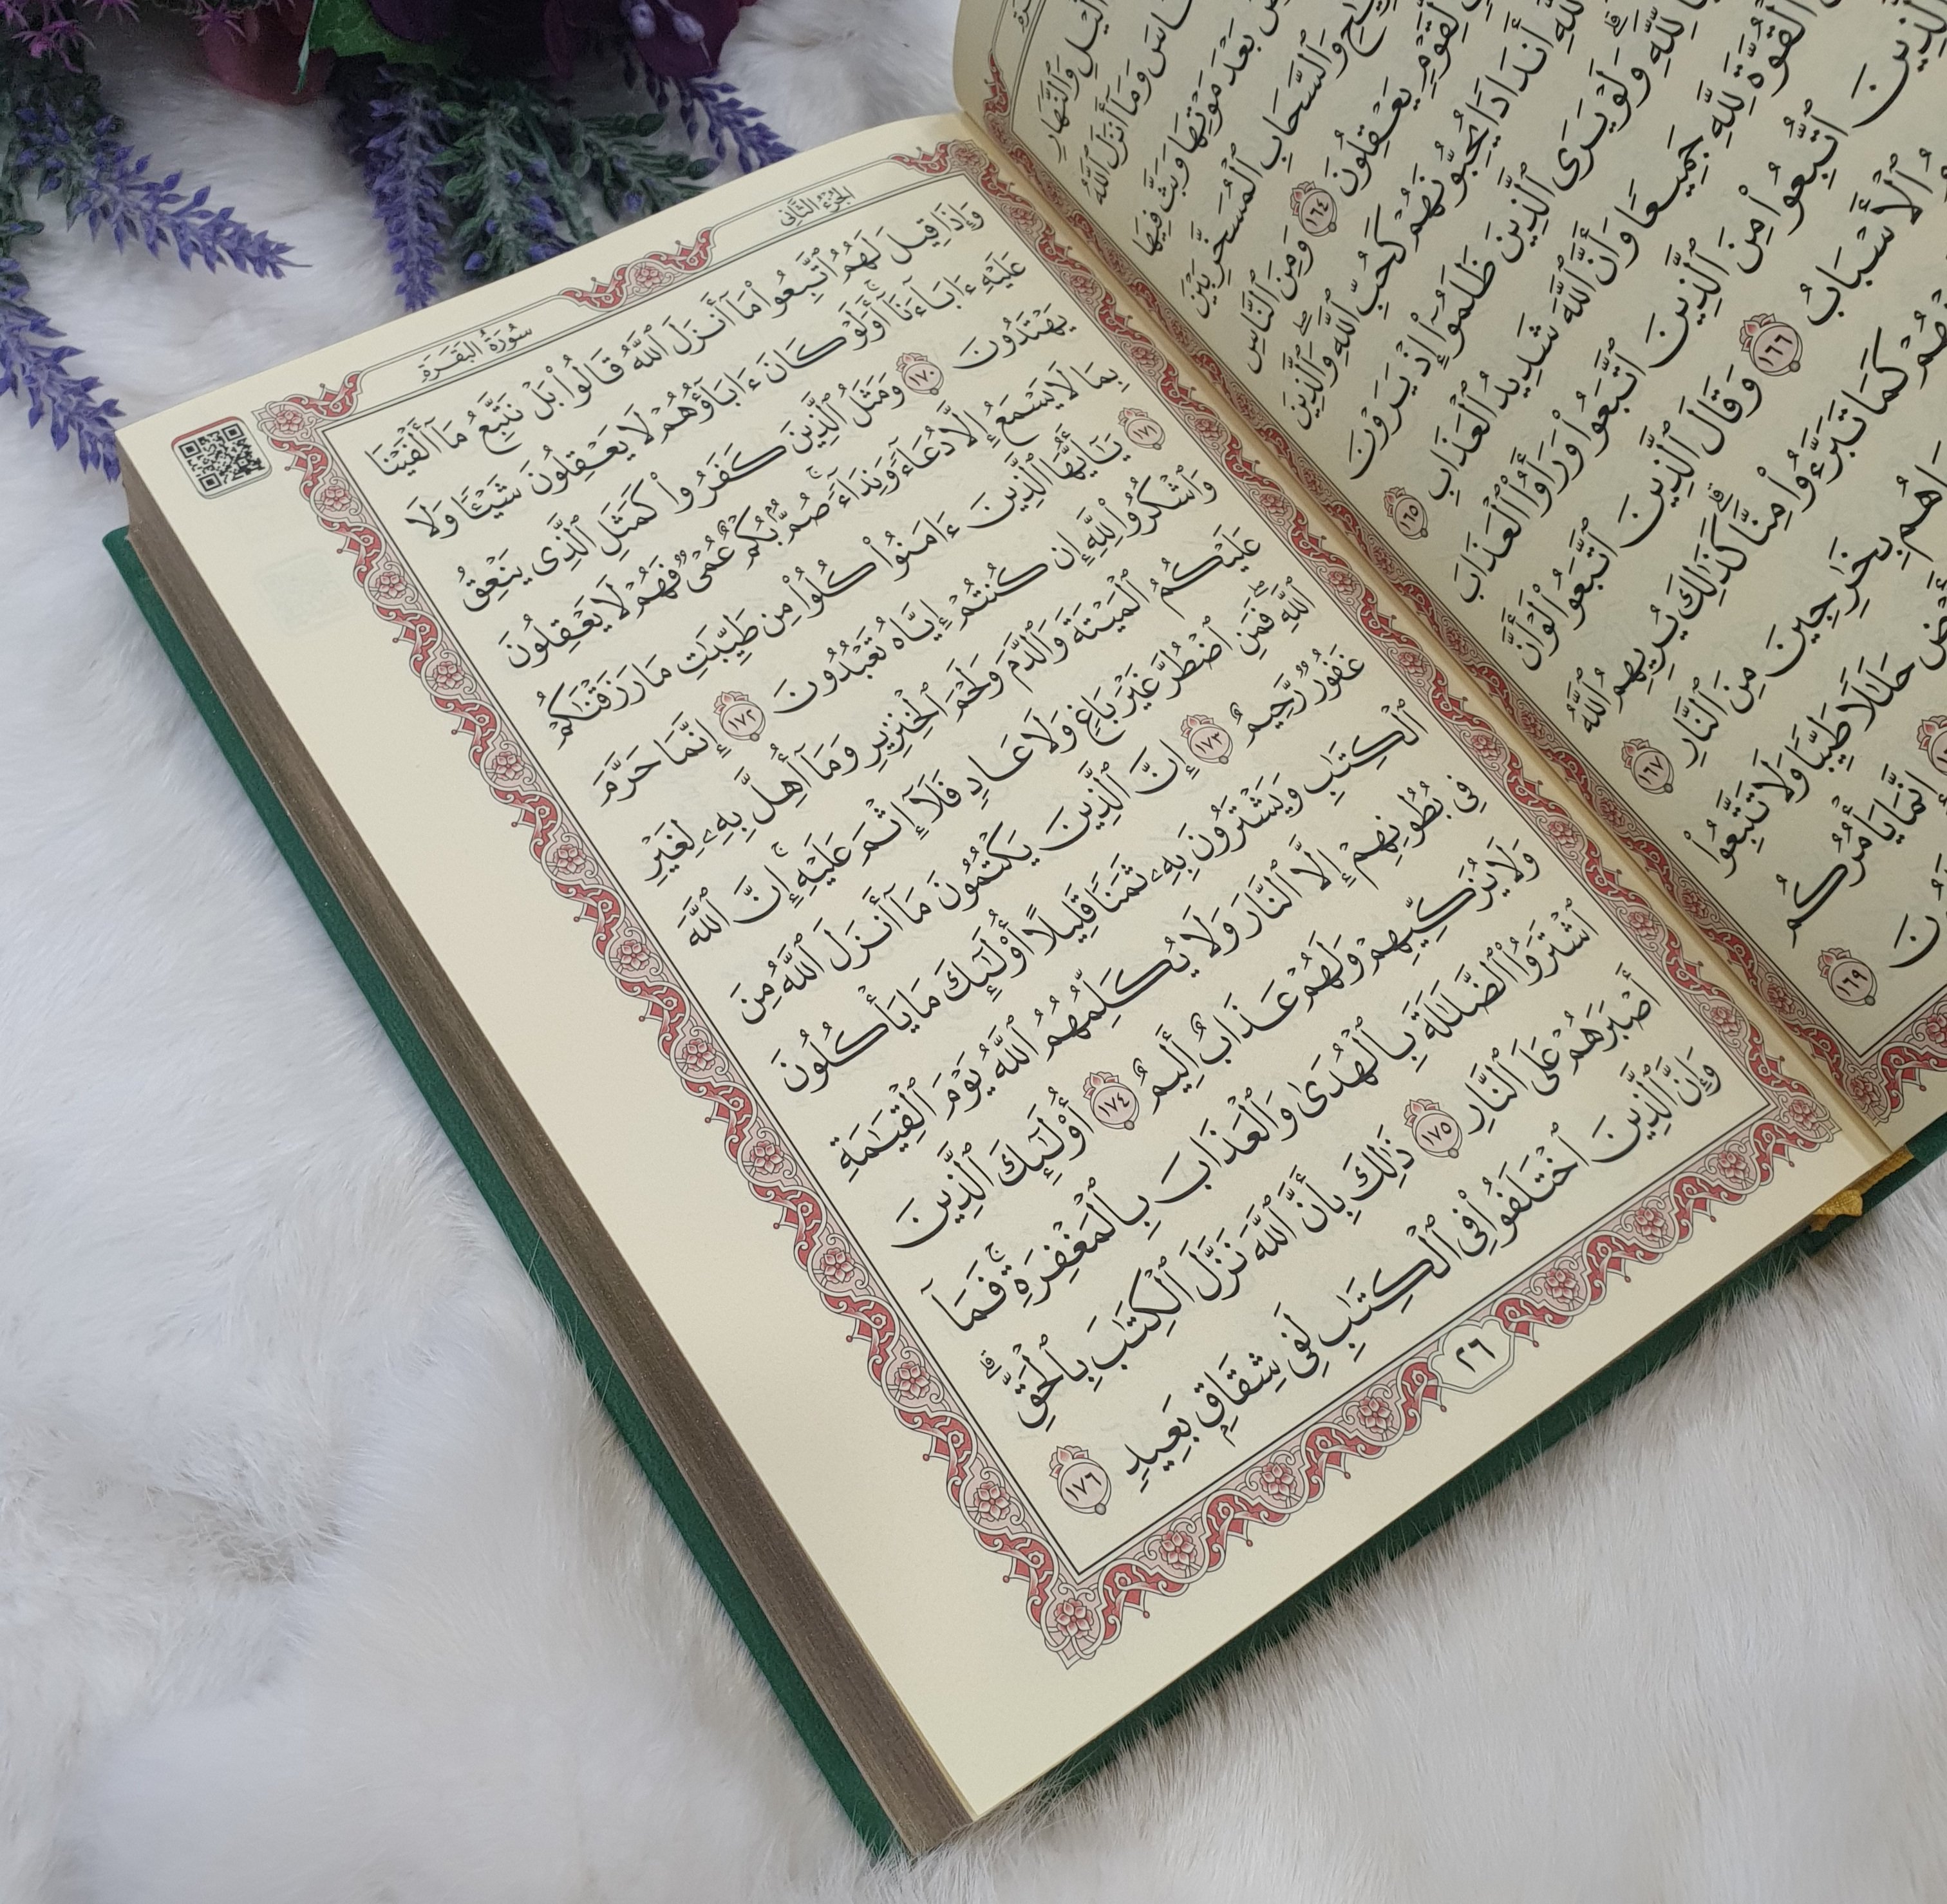 ٱلَّيۡلِ وَٱلنَّهَارِ
وَمَآ أَنزَلَ ٱللَّهُ
بَعۡدَ مَوۡتِهَا وَبَثَّ فِيهَا
وَٱلسَّحَابِ ٱلۡمُسَخَّرِ بَيۡنَ
لِّقَوۡمٖ يَعۡقِلُونَ ١٦٤ وَمِنَ ٱلنَّاسِ
أَندَادٗا يُحِبُّونَهُمۡ كَحُبِّ ٱللَّهِۖ وَٱلَّذِينَ
لِّلَّهِۗ وَلَوۡ يَرَى ٱلَّذِينَ ظَلَمُوٓاْ إِذۡ يَرَوۡنَ
ٱلۡقُوَّةَ لِلَّهِ جَمِيعٗا وَأَنَّ ٱللَّهَ شَدِيدُ ٱلۡعَذَابِ ١٦٥
ٱلَّذِينَ ٱتُّبِعُواْ مِنَ ٱلَّذِينَ ٱتَّبَعُواْ وَرَأَوُاْ ٱلۡعَذَابَ
ٱلۡأَسۡبَابُ ١٦٦ وَقَالَ ٱلَّذِينَ ٱتَّبَعُواْ لَوۡ أَنَّ
كَمَا تَبَرَّءُواْ مِنَّاۗ كَذَٰلِكَ يُرِيهِمُ ٱللَّهُ
هُم بِخَٰرِجِينَ مِنَ ٱلنَّارِ ١٦٧
حَلَٰلٗا طَيِّبٗا وَلَا تَتَّبِعُواْ
إِنَّمَا يَأۡمُرُكُم
١٦٩
الجُزْءُ الثَّانِي سُورَةُ البَقَرَةِ
وَإِذَا قِيلَ لَهُمُ ٱتَّبِعُواْ مَآ أَنزَلَ ٱللَّهُ قَالُواْ بَلۡ نَتَّبِعُ مَآ أَلۡفَيۡنَا
عَلَيۡهِ ءَابَآءَنَآۚ أَوَلَوۡ كَانَ ءَابَآؤُهُمۡ لَا يَعۡقِلُونَ شَيۡـٔٗا وَلَا
يَهۡتَدُونَ ١٧٠ وَمَثَلُ ٱلَّذِينَ كَفَرُواْ كَمَثَلِ ٱلَّذِي يَنۡعِقُ
بِمَا لَا يَسۡمَعُ إِلَّا دُعَآءٗ وَنِدَآءٗۚ صُمُّۢ بُكۡمٌ عُمۡيٞ فَهُمۡ لَا يَعۡقِلُونَ
١٧١ يَٰٓأَيُّهَا ٱلَّذِينَ ءَامَنُواْ كُلُواْ مِن طَيِّبَٰتِ مَا رَزَقۡنَٰكُمۡ
وَٱشۡكُرُواْ لِلَّهِ إِن كُنتُمۡ إِيَّاهُ تَعۡبُدُونَ ١٧٢ إِنَّمَا حَرَّمَ
عَلَيۡكُمُ ٱلۡمَيۡتَةَ وَٱلدَّمَ وَلَحۡمَ ٱلۡخِنزِيرِ وَمَآ أُهِلَّ بِهِۦ لِغَيۡرِ
ٱللَّهِۖ فَمَنِ ٱضۡطُرَّ غَيۡرَ بَاغٖ وَلَا عَادٖ فَلَآ إِثۡمَ عَلَيۡهِۚ إِنَّ ٱللَّهَ
غَفُورٞ رَّحِيمٌ ١٧٣ إِنَّ ٱلَّذِينَ يَكۡتُمُونَ مَآ أَنزَلَ ٱللَّهُ مِنَ
ٱلۡكِتَٰبِ وَيَشۡتَرُونَ بِهِۦ ثَمَنٗا قَلِيلًا أُوْلَٰٓئِكَ مَا يَأۡكُلُونَ
فِي بُطُونِهِمۡ إِلَّا ٱلنَّارَ وَلَا يُكَلِّمُهُمُ ٱللَّهُ يَوۡمَ ٱلۡقِيَٰمَةِ
وَلَا يُزَكِّيهِمۡ وَلَهُمۡ عَذَابٌ أَلِيمٌ ١٧٤ أُوْلَٰٓئِكَ ٱلَّذِينَ
ٱشۡتَرَوُاْ ٱلضَّلَٰلَةَ بِٱلۡهُدَىٰ وَٱلۡعَذَابَ بِٱلۡمَغۡفِرَةِۚ فَمَآ
أَصۡبَرَهُمۡ عَلَى ٱلنَّارِ ١٧٥ ذَٰلِكَ بِأَنَّ ٱللَّهَ نَزَّلَ ٱلۡكِتَٰبَ بِٱلۡحَقِّۗ
وَإِنَّ ٱلَّذِينَ ٱخۡتَلَفُواْ فِي ٱلۡكِتَٰبِ لَفِي شِقَاقِۭ بَعِيدٖ ١٧٦
٢٦